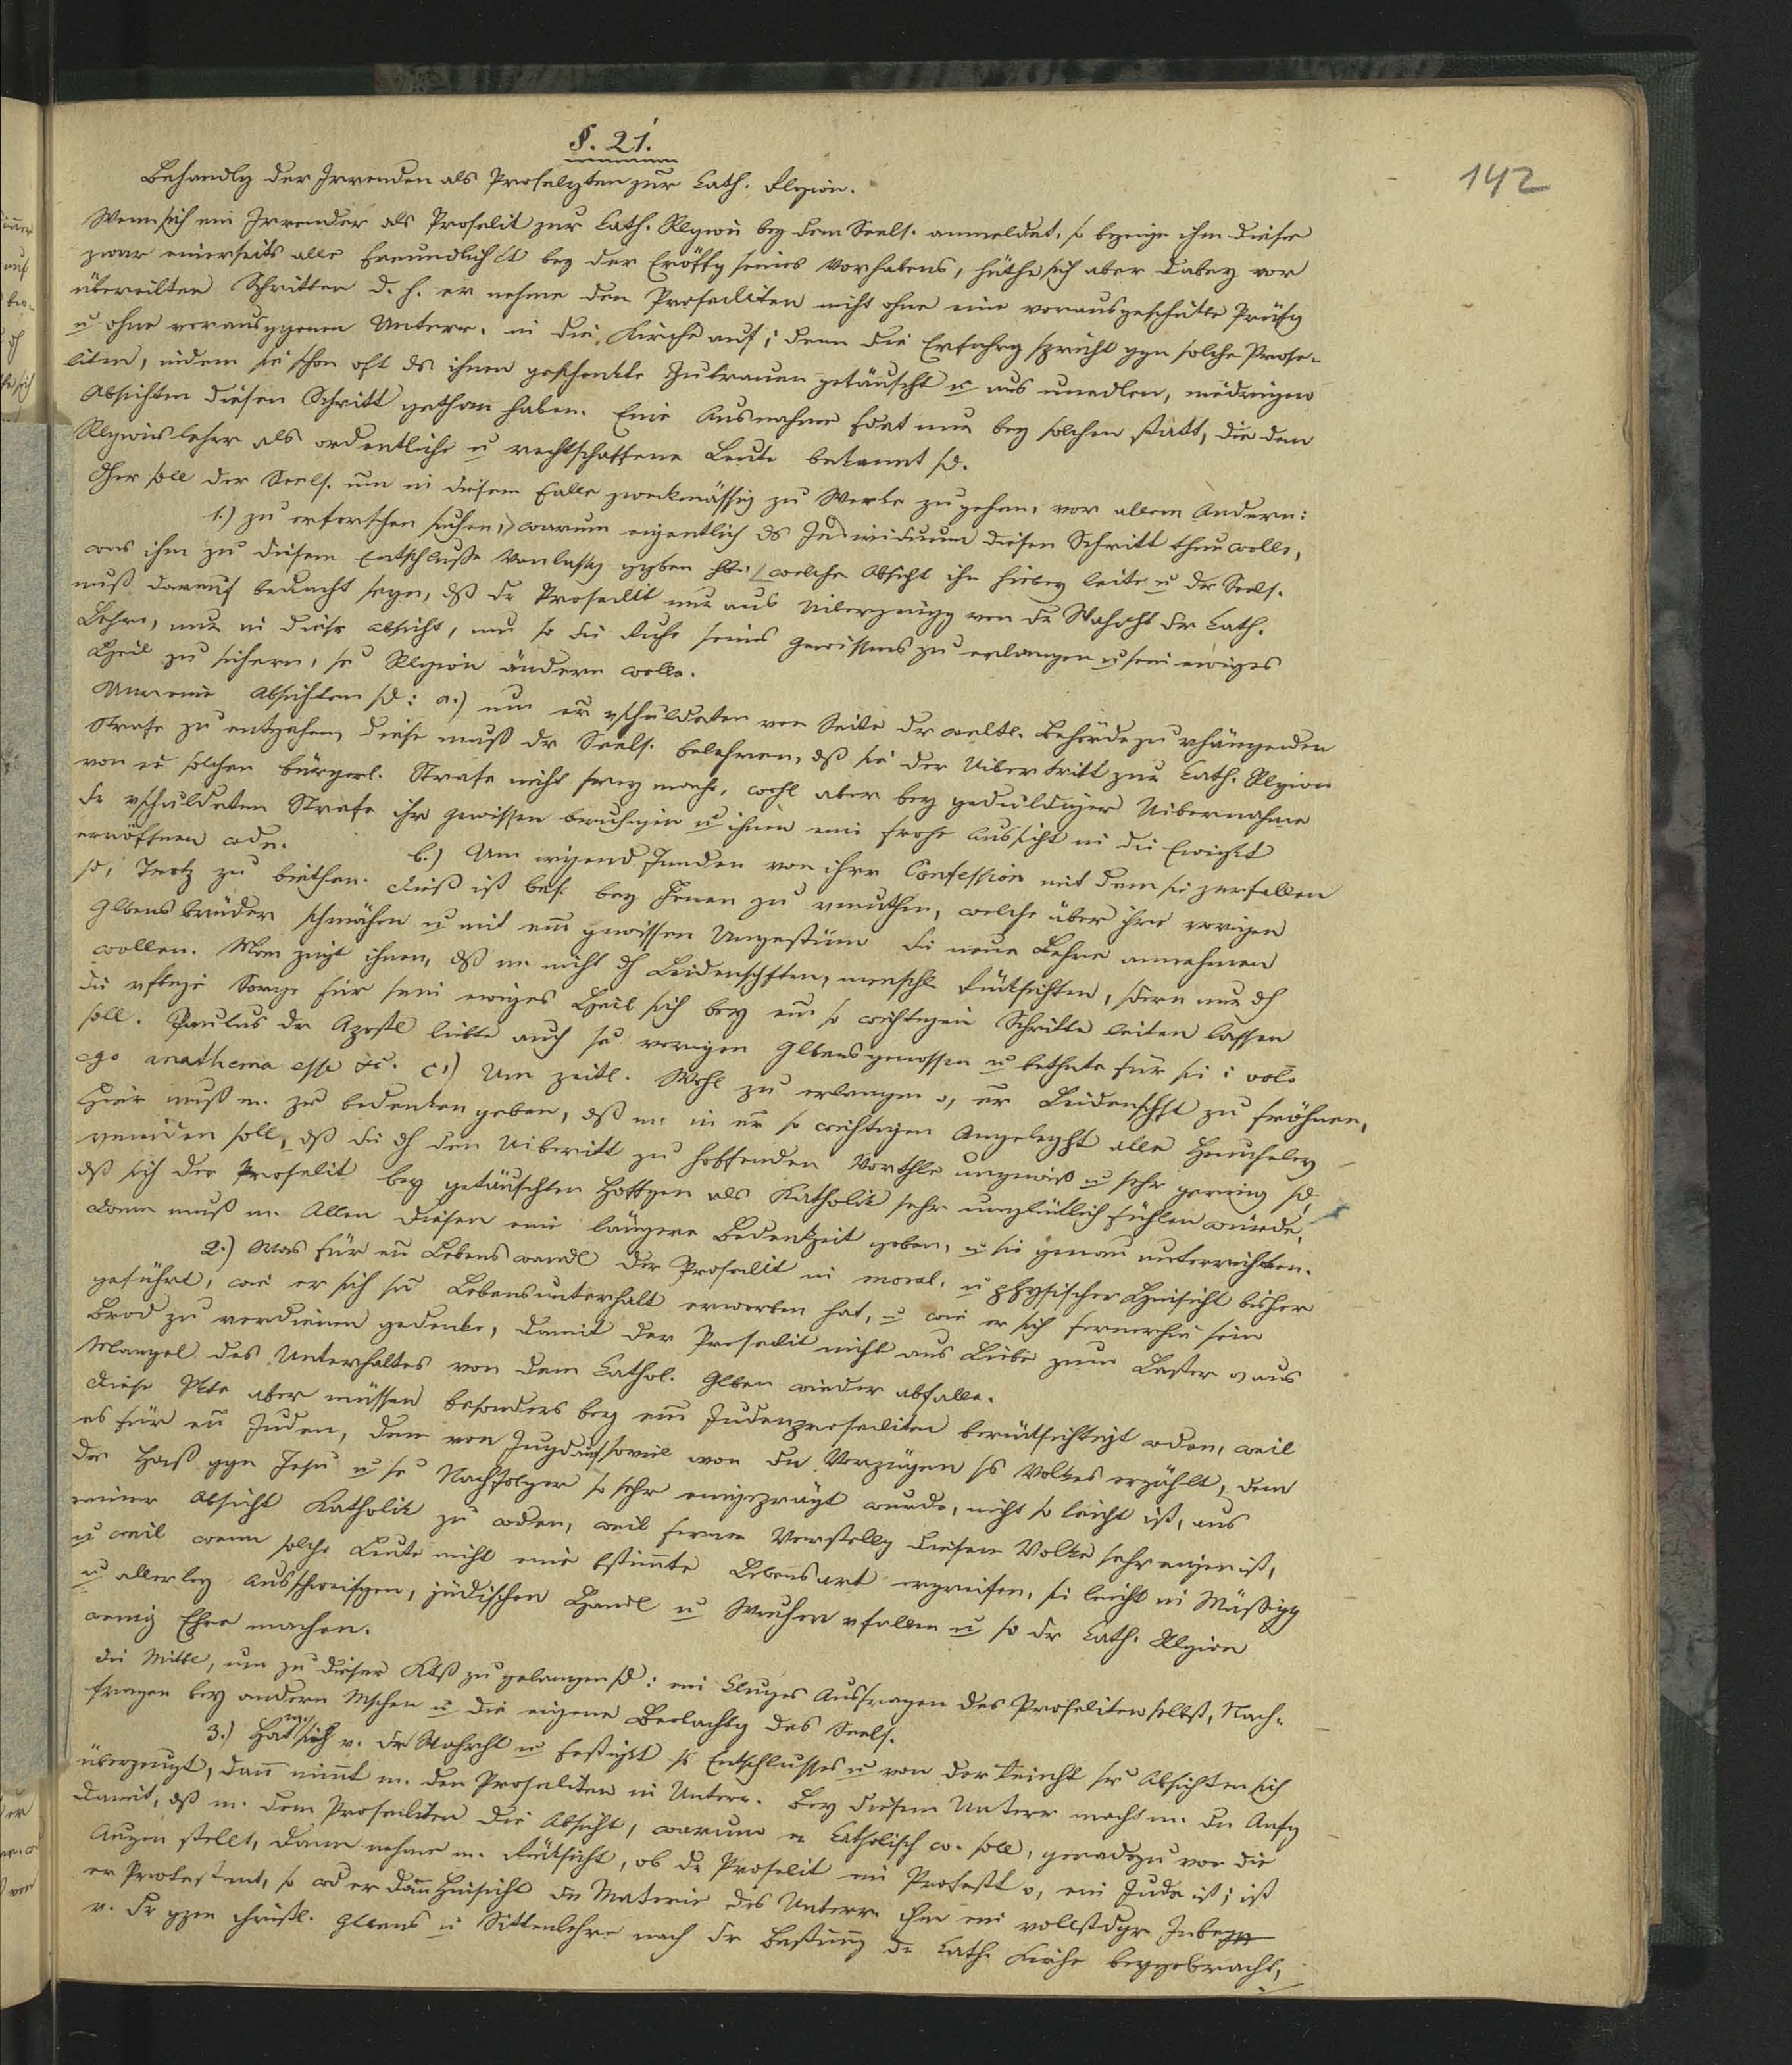 142
§. 21.
Behandlg der Irrenden als Proselyten zur Cath. Rlgion.
Wenn sich ein Irrender als Proselit zur Cath. Rlgion bey dem Seels. anmeldet, so bezeige ihm dieser
zwar einerseits alle Freundlichkt bey der Eröffg seines Vorhabens, hüthe sich aber dabey vor
übereilten Schritten d. h. er nehme den Proseliten nicht ohne eine vorausgeschikte Prüfg
u ohne vorausggenen Unterr. in die Kirche auf; denn die Erfahrg spricht ggn solche Prose-
liten, indem sie schon oft ds ihnen geschenkte Zutrauen getäuscht u aus unedlen, niedrigen
Absichten diesen Schritt gethan haben. Eine Ausnahme fdet nur bey solchen statt, die dem
Rlgionslehrer als ordentliche u rechtschaffene Leute bekannt sd.
Hier soll der Seels. um in diesem Falle zwekmässig zu Werke zu gehen, vor allem Andern:
1.) zu erforschen suchen, warum eigentlich ds Individuum diesen Schritt thun wolle,
was ihm zu diesem Entschluße Vanlassg ggben welche Absicht ihn hiebey leite u der Seels.
muß darauf bedacht seyn, dß dr Proselit nur aus Uiberzeugg von dr Wahrht dr Cath.
Lehre, nur in dieser Absicht, um so die Ruhe seines Gewissens zu erlangen u sein ewiges
Heil zu sichern, se Rlgion ändern wolle.
Unreine Absichten sd: a.) um er vschuldeten von Seite dr weltl. Behörde zu vhängenden
Strafe zu entgehen, diese muß dr Seels. belehren, dß sie der Uibertritt zur Cath. Rlgion
von er solchen bürgerl. Strafe nicht frey mache, wohl aber bey geduldiger Uibernahme
dr vschuldeten Strafe ihr Gewissen beruhigen u ihnen eine frohe Aussicht in die Ewigkt
eröffnen wdn.
b.) Um irgend Jemden von ihrer Confession mit dem sie zerfallen
sd, Trotz zu biethen. Dieß ist bes. bey Jenen zu vmuthen, welche über ihre vorigen
Glbensbrüder schmähen u mit em gewissen Ungestüm die neue Lehre annehmen
wollen. Man zeigt ihnen, dß m. nicht dh Leidenschften, menschl Rüksichten, sdern nur dh
die Sorge für sein ewiges Heil sich bey em so wichtigen Schritte leiten lassen
soll. Paulus dr Apostl liebte auch se vorigen Glbensgenossen u bethete für sie: volo
ego anathema esse &c. c.) Um zeitl. Wohl zu erlangen o, er Leidenschft zu fröhnen,
Hier muß m. zu bedenken geben, dß m. in er so wichtigen Angeleght alle Heucheley
vmeiden soll, dß die dh den Uibertritt zu hoffenden Vortheile ungewiß u sehr gering sd,
dß sich der Proselit bey getäuschten Hoffgen als Katholik sehr unglüklich fühlen würde.
Dann muß m. Allen diesen eine längere Bedenkzeit geben, u sie genau unterrichten.
2.) Was für en Lebenswandl der Proselit in moral. u physischer Hinsicht bisher
geführt, wie er sich sn Lebensunterhalt erworben hat, u wie er sich fernerhin sein
Brod zu verdienen gedenke, damit der Proselit nicht aus Liebe zum Laster o, aus
Mangel des Unterhaltes von dem Cathol. Glben wieder abfalle.
Diese Pkte aber müssen besonders bey em Judenproseliten berüksichtigt wden, weil
es für en Juden, dem von Jugd auf soviel von den Vorzügen ss Volkes erzählt, dem
der Haß ggn Jesu u se Nachfolger so sehr eingeprägt wurde, nicht so leicht ist, aus
reiner Absicht Katholik zu wden, weil ferner Verstellg diesem Volke sehr eigen ist,
u weil wenn solche Leute nicht eine bstimte Lebensart ergreifen, sie leicht in Müßigg
u allerley Ausschweifgen, jüdischen Handl u Wucher vfallen u so dr Cath. Rlgion
wenig Ehre machen.
Die Mittl, um zu dieser Ktß zu gelangen sd: ein kluges Ausfragen des Proseliten selbst, Nach-
fragen bey andern Mschen u die eigene Beobachtg des Seels.
3.) Hat m. sich v. dr Wahrht u Festigkt ss Entschlusses u von der Reinht sr Absichten sich
überzeugt, dann nimt m. den Proseliten in Unterr. Bey diesem Unterr macht m. den Anfg
damit, dß m. dem Proseliten die Absicht, warum er Catholisch w. soll, geradezu vor die
Augen stellt, dann nehme m. Rüksicht, ob dr Proselit ein Protestt o, ein Jude ist; ist
er Protestant, so wd er dann Hinsicht der Materie des Unterr. ihm ein vollstdger Inbegr
v. dr gzen christl. Glbens u Sittenlehre nach dr Bestimg dr Cath. Kirche beygebracht,